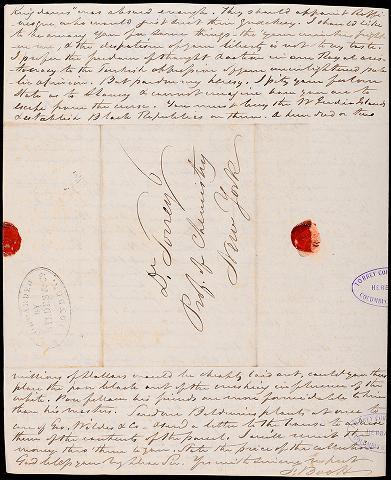 Kingdoms" was absurd enough. They should appoint Ralfs
colleague who would just suit their Gradeship. I should like
to be among you for some things. the "yours in haste
me, & the despotism of your liberty is not to my taste.
I prefer the freedom of thought & action in our Royal
to the Turkish oppression of your unenlightened
But pardon my heresy. I pity your future
State as to Slavery, & cannot see how you are to
escape from the curse. You must buy the W. Indies Islands
& establish Black Republics on them. A hundred or two
Dr. Torrey
Prof. of Chemistry
New York
FORWARDED
BY
WILDES & Co
TORREY
HERB
COLUMBIA
millions of Dollars would be cheaply laid out, could you thus
place the poor blacks out of the crushing influence of the
white. Poor fellow his friends are more formidable to him
than his masters. Send me Baldwin's plants at once to
care of Geo. Wildes & Co. & send a letter to the house to advise
them of the contents of the parcel. I will remit the
money thro them to you. State the price of the collection
God help you my Dear Sir. Yrs mit sincere
F. Boott